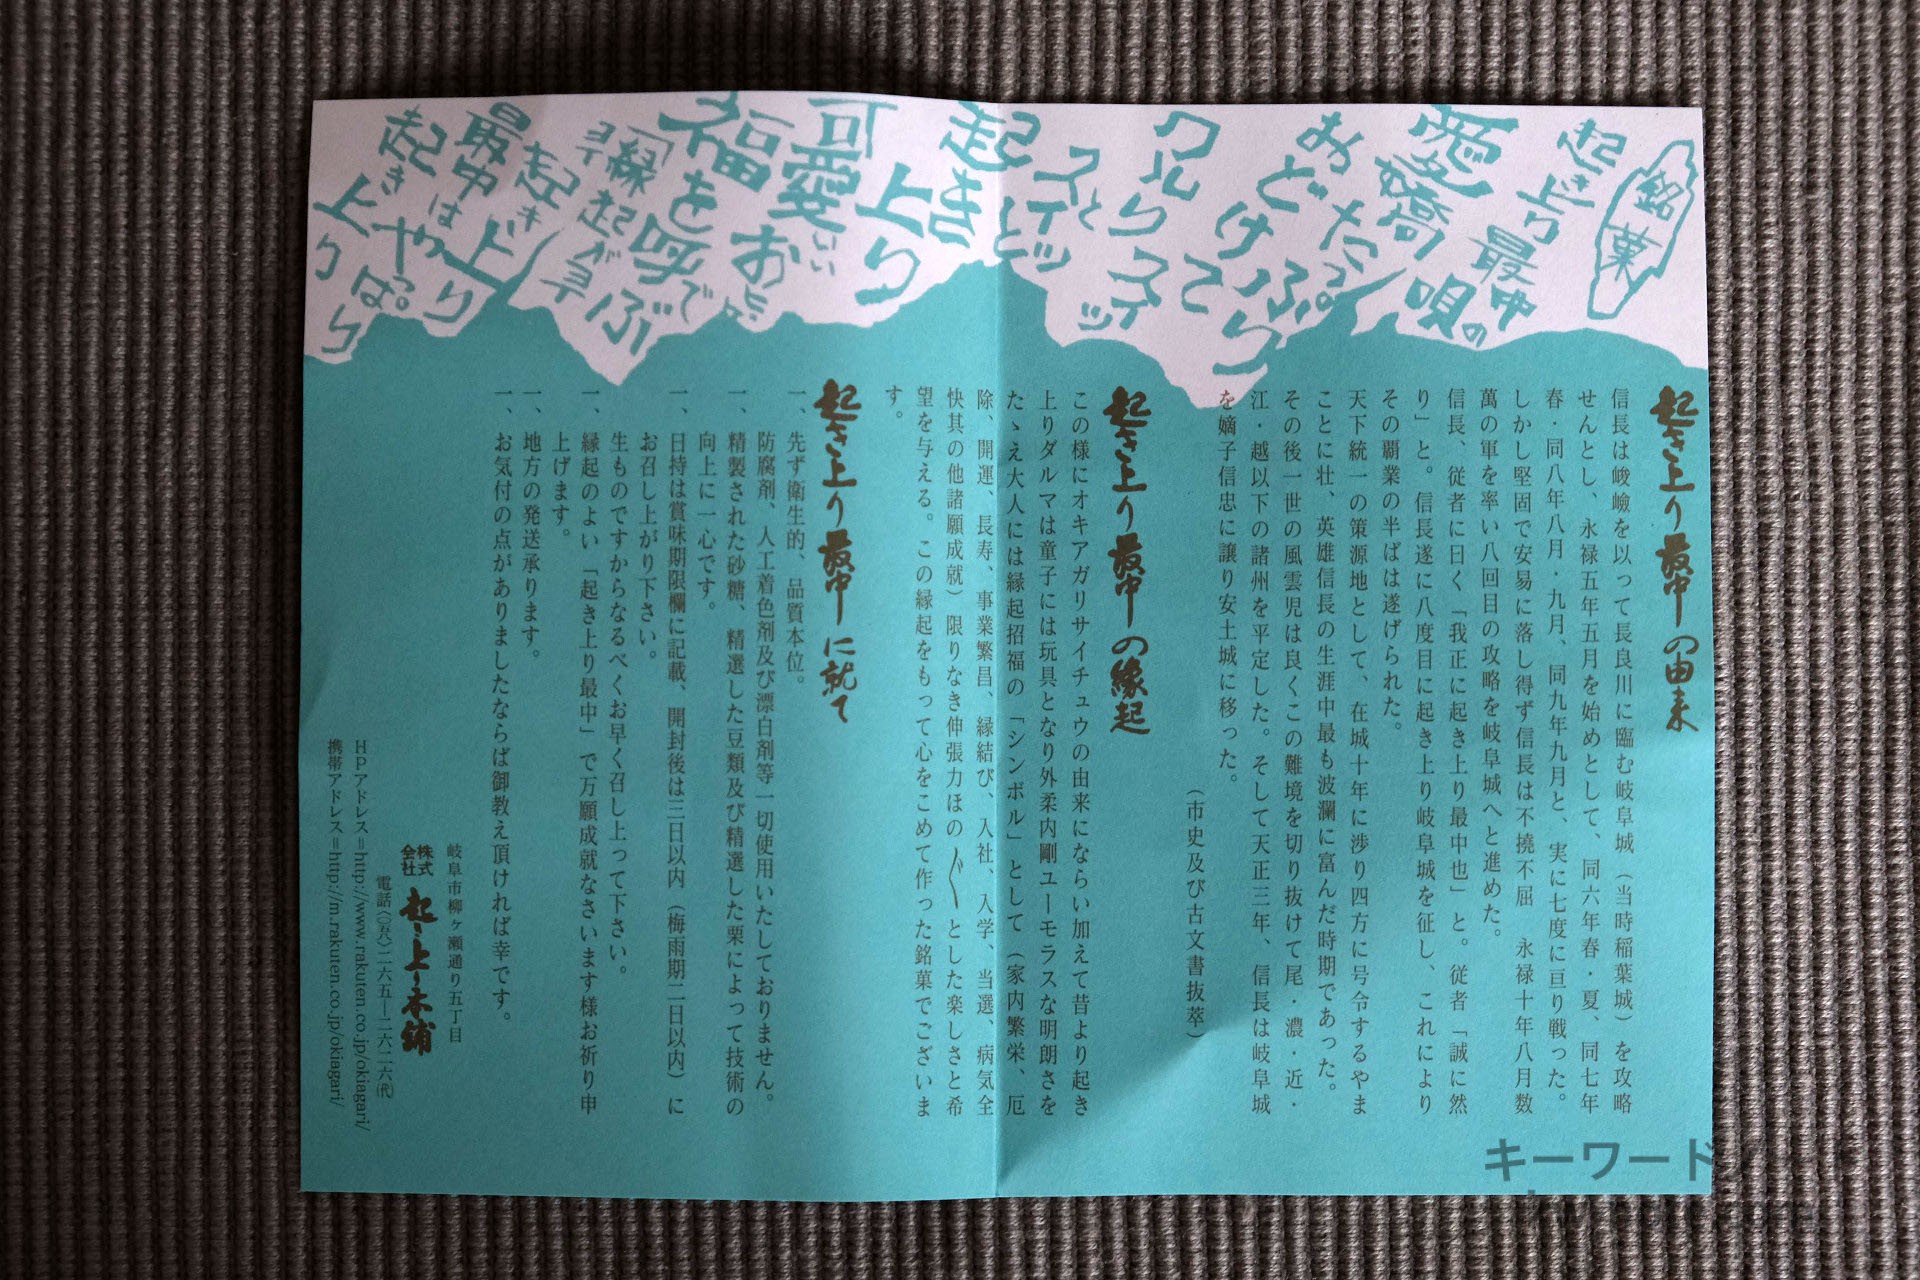 銘菓
起き上り最中の
愛嬌唄
おどけぶり
おたっ
クルリ
スイッ
スイッと
起き
上り
可愛いい
お
福を呼ぶ
「縁起が
起き上り
最中は
起き
上り
やっぱり
起き上り最中の由来
信長は峻嶮を以って長良川に臨む岐阜城(当時稲葉城)を攻略
せんとし、永禄五年五月を始めとして、同六年春・夏、同七年
春・同八年八月・九月、同九年九月と、実に七度に亘り戦った。
しかし堅固で安易に落し得ず信長は不撓不屈 永禄十年八月数
萬の軍を率い八回目の攻略を岐阜城へと進めた。
信長、従者に曰く「我正に起き上り最中也」と。従者「誠に然
り」と。信長遂に八度目に起き上り岐阜城を征し、これにより
その覇業の半ばは遂げられた。
天下統一の策源地として、在城十年に渉り四方に号令するやま
ことに壮、英雄信長の生涯中最も波瀾に富んだ時期であった。
その後一世の風雲児は良くこの難境を切り抜けて尾・濃・近・
江・越以下の諸州を平定した。そして天正三年、信長は岐阜城
を嫡子信忠に譲り安土城に移った。
(市史及び古文書抜萃)
起き上り最中の縁起
この様にオキアガリサイチュウの由来にならい加えて昔より起き
上りダルマは童子には玩具となり外柔内剛ユーモラスな明朗さを
たゝえ大人には縁起招福の「シンボル」として(家内繁栄、厄
除、開運、長寿、事業繁昌、縁結び、入社、入学、当選、病気全
快其の他諸願成就)限りなき伸張力ほの〴〵とした楽しさと希
望を与える。この縁起をもって心をこめて作った銘菓でございま
す。
起き上り最中に就て
一、先ず衛生的、品質本位。
防腐剤、人工着色剤及び漂白剤等一切使用いたしておりません。
一、精製された砂糖、精選した豆類及び精選した栗によって技術の
向上に一心です。
一、日持は賞味期限欄に記載、開封後は三日以内(梅雨期二日以内)に
お召し上がり下さい。
生ものですからなるべくお早く召し上って下さい。
一、縁起のよい「起き上り最中」で万願成就なさいます様お祈り申
上げます。
一、地方の発送承ります。
一、お気付の点がありましたならば御教え頂ければ幸です。
岐阜市柳ヶ瀬通り五丁目
株式会社 起き上り本舗
電話〈〇五八〉二六五―二六二六㈹
HPアドレス=http://www.rakuten.co.jp/okiagari/
携帯アドレス=http://m.rakuten.co.jp/okiagari/
キーワード